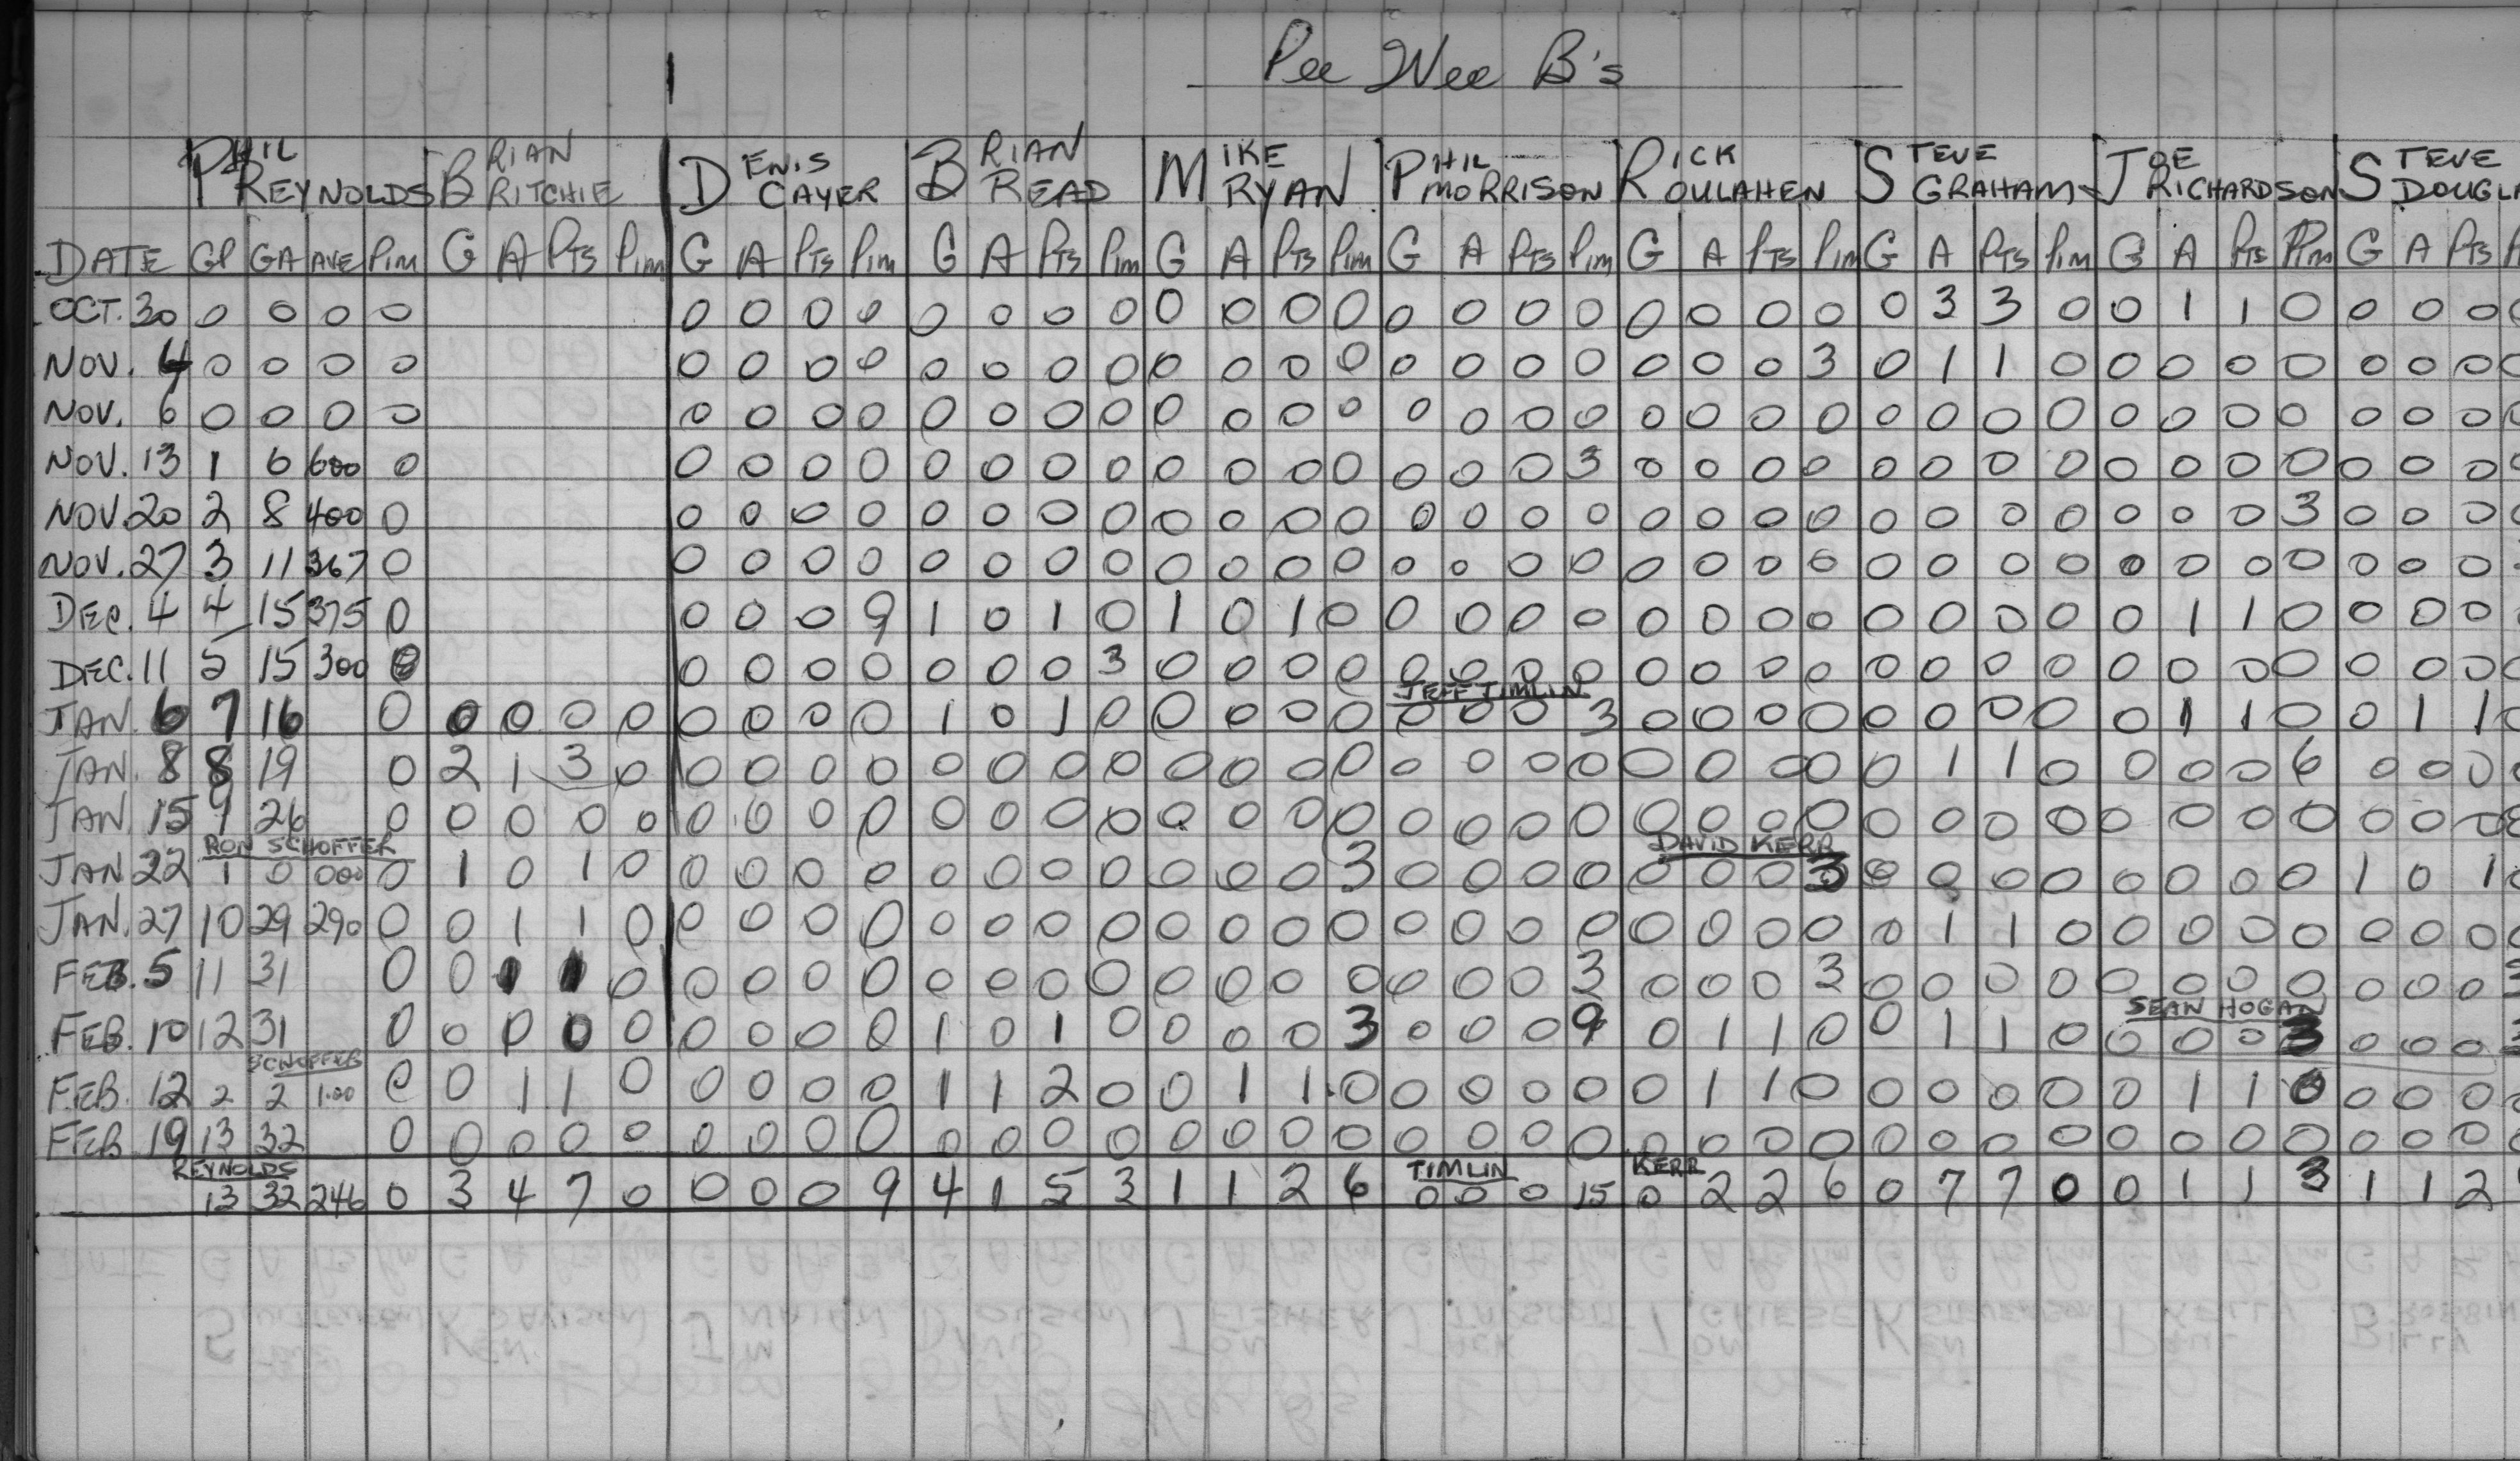 Pee Wee B's
PHIL REYNOLDS BRIAN RITCHIE DENIS CAYER BRIAN READ MIKE RYAN PHIL MORRISON RICK ROULAHEN STEVE GRAHAM JOE RICHARDSON STEVE DOUGLA
DATE GP GA AVE Pim G A PTS Pim G A PTS Pim G A PTS Pim G A PTS Pim G A PTS Pim G A PTS Pim G A PTS Pim G A PTS Pim G A PTS
OCT. 30 0 0 0 0 0 0 0 0 0 0 0 0 0 0 0 0 0 0 0 0 0 0 0 0 0 3 3 0 0 1 1 0 0 0 0
NOV. 4 0 0 0 0 0 0 0 0 0 0 0 0 0 0 0 0 0 0 0 0 0 0 0 3 0 1 1 0 0 0 0 0 0 0 0
NOV. 6 0 0 0 0 0 0 0 0 0 0 0 0 0 0 0 0 0 0 0 0 0 0 0 0 0 0 0 0 0 0 0 0 0 0 0
NOV. 13 1 6 600 0 0 0 0 0 0 0 0 0 0 0 0 0 0 0 0 3 0 0 0 0 0 0 0 0 0 0 0 0 0 0 0
NOV. 20 2 8 400 0 0 0 0 0 0 0 0 0 0 0 0 0 0 0 0 0 0 0 0 0 0 0 0 0 0 0 0 3 0 0 0
NOV. 27 3 11 367 0 0 0 0 0 0 0 0 0 0 0 0 0 0 0 0 0 0 0 0 0 0 0 0 0 0 0 0 0 0 0 0
DEC. 4 4 15 375 0 0 0 0 9 1 0 1 0 1 0 1 0 0 0 0 0 0 0 0 0 0 0 0 0 0 1 1 0 0 0 0
DEC. 11 5 15 300 0 0 0 0 0 0 0 0 3 0 0 0 0 0 0 0 0 0 0 0 0 0 0 0 0 0 0 0 0 0 0 0
JEFF TIMLIN
JAN. 6 7 16 0 0 0 0 0 0 0 0 0 1 0 1 0 0 0 0 0 0 0 0 3 0 0 0 0 0 0 0 0 0 1 1 0 0 1 1
JAN. 8 8 19 0 2 1 3 0 0 0 0 0 0 0 0 0 0 0 0 0 0 0 0 0 0 0 0 0 0 1 1 0 0 0 0 6 0 0 0
JAN. 15 9 26 0 0 0 0 0 0 0 0 0 0 0 0 0 0 0 0 0 0 0 0 0 0 0 0 0 0 0 0 0 0 0 0 0 0 0 0
RON SCHOFFER DAVID KERR
JAN 22 1 0 000 0 1 0 1 0 0 0 0 0 0 0 0 0 0 0 0 3 0 0 0 0 0 0 0 3 0 0 0 0 0 0 0 0 1 0 1
JAN. 27 10 29 290 0 0 1 1 0 0 0 0 0 0 0 0 0 0 0 0 0 0 0 0 0 0 0 0 0 0 1 1 0 0 0 0 0 0 0 0
FEB. 5 11 31 0 0 1 1 0 0 0 0 0 0 0 0 0 0 0 0 0 0 0 0 3 0 0 0 3 0 0 0 0 0 0 0 0 0 0 0
SEAN HOGAN
FEB. 10 12 31 0 0 0 0 0 0 0 0 0 1 0 1 0 0 0 0 3 0 0 0 9 0 1 1 0 0 1 1 0 0 0 0 3 0 0 0
SCHOFFER
FEB. 12 2 2 1.00 0 0 1 1 0 0 0 0 0 1 1 2 0 0 1 1 0 0 0 0 0 0 1 1 0 0 0 0 0 0 1 1 0 0 0 0
FEB 19 13 32 0 0 0 0 0 0 0 0 0 0 0 0 0 0 0 0 0 0 0 0 0 0 0 0 0 0 0 0 0 0 0 0 0 0 0 0
REYNOLDS TIMLIN KERR
13 32 246 0 3 4 7 0 0 0 0 9 4 1 5 3 1 1 2 6 0 0 0 15 0 2 2 6 0 7 7 0 0 1 1 3 1 1 2